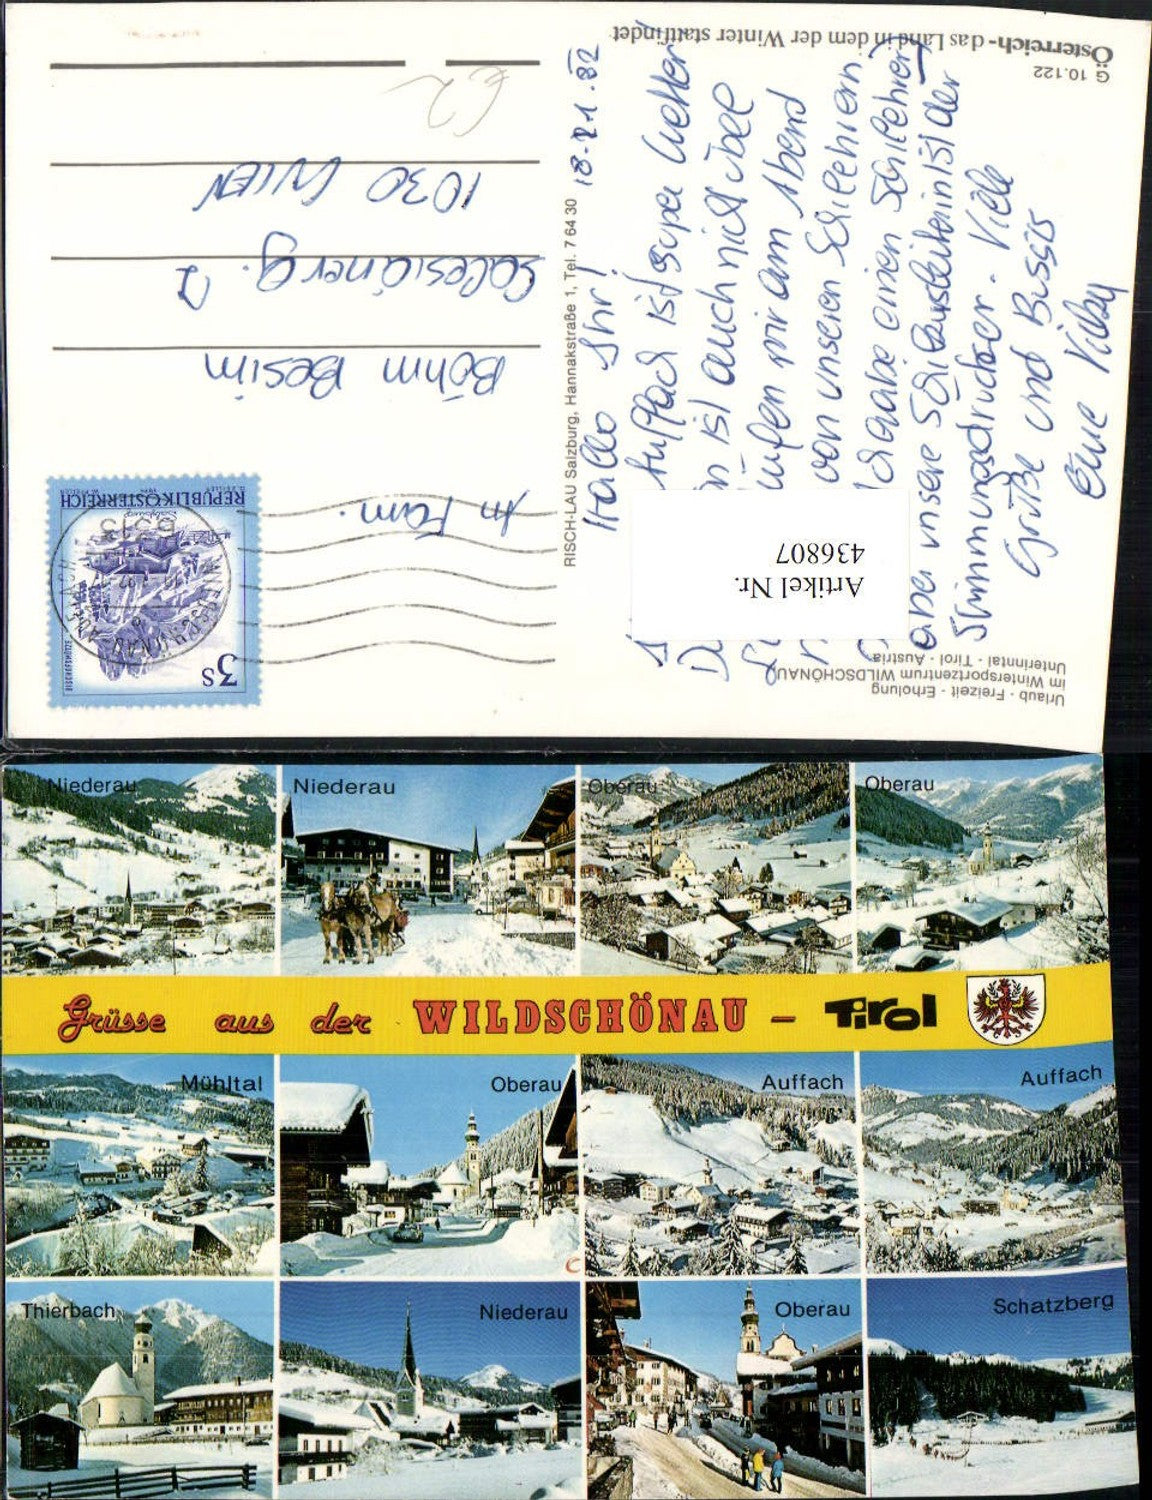 Österreich - das Land in dem der Winter stattfindet
G 10.122
18-21.82
Hallo Ihr!
Auffach ist super Wetter
ist auch nicht übel
wir am Abend
von unseren Schilehrern
habe einen Schilehrer,
aber unsere
ist der
Stimmungsdrücker. Viele
Grüße und Bussis
Eure
Urlaub · Freizeit · Erholung
im Wintersportzentrum WILDSCHÖNAU
Unterinntal · Tirol · Austria
RISCH-LAU Salzburg, Hannakstraße 1, Tel. 7 64 30
REPUBLIK ÖSTERREICH
3 S
An Fam.
Böhm Besim
Salesianerg. 2
1030 WIEN
€2
Artikel Nr.
436807
Niederau
Niederau
Oberau
Oberau
Grüsse aus der WILDSCHÖNAU – Tirol
Mühltal
Oberau
Auffach
Auffach
Thierbach
Niederau
Oberau
Schatzberg